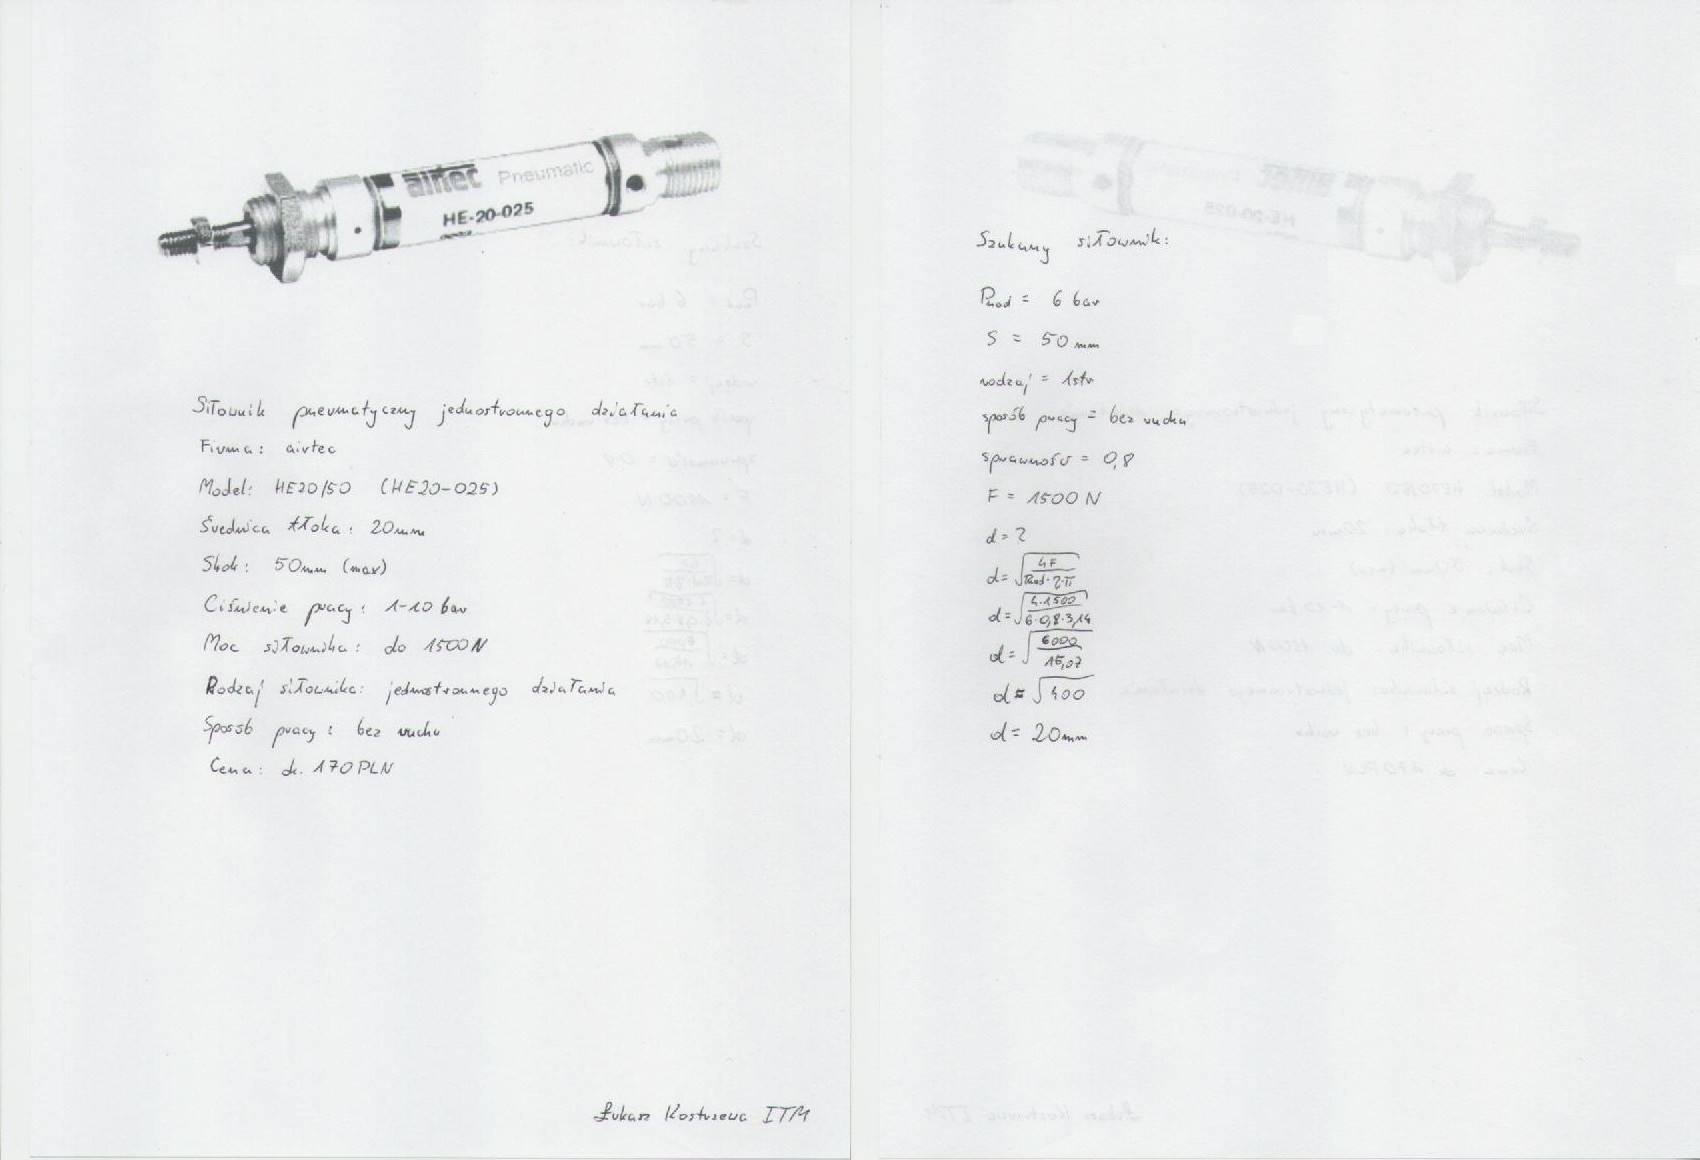 airtec Pneumatic
HE-20-025
Siłownik pneumatyczny jednostronnego działania
Firma: airtec
Model: HE20/50 (HE20-025)
Średnica tłoka: 20mm
Skok: 50mm (max)
Ciśnienie pracy: 1-10 bar
Moc siłownika: do 1500N
Rodzaj siłownika: jednostronnego działania
Sposób pracy: bez ruchu
Cena: ok. 170PLN
Łukasz Kostrzewa ITM
Szukany siłownik:
Pnad = 6 bar
S = 50mm
rodzaj = 1str
sposób pracy = bez ruchu
sprawność = 0,8
F = 1500N
d = ?
d = √(4F / Pnad·η·π)
d = √(4·1500 / 6·0,8·3,14)
d = √(6000 / 15,07)
d = √400
d = 20mm